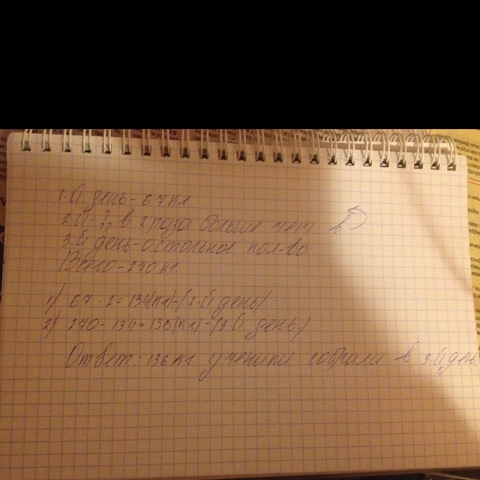 1-й день - 67 кг
2-й - ?, в 2 раза больше чем в
3-й день - остальное кол-во
Всего - 270 кг.
1) 67 · 2 = 134(кг) - (2-й день)
2) 270 - 134 = 136(кг) - (3-й день)
Ответ. 136 кг ученики собрали в 3-й день.